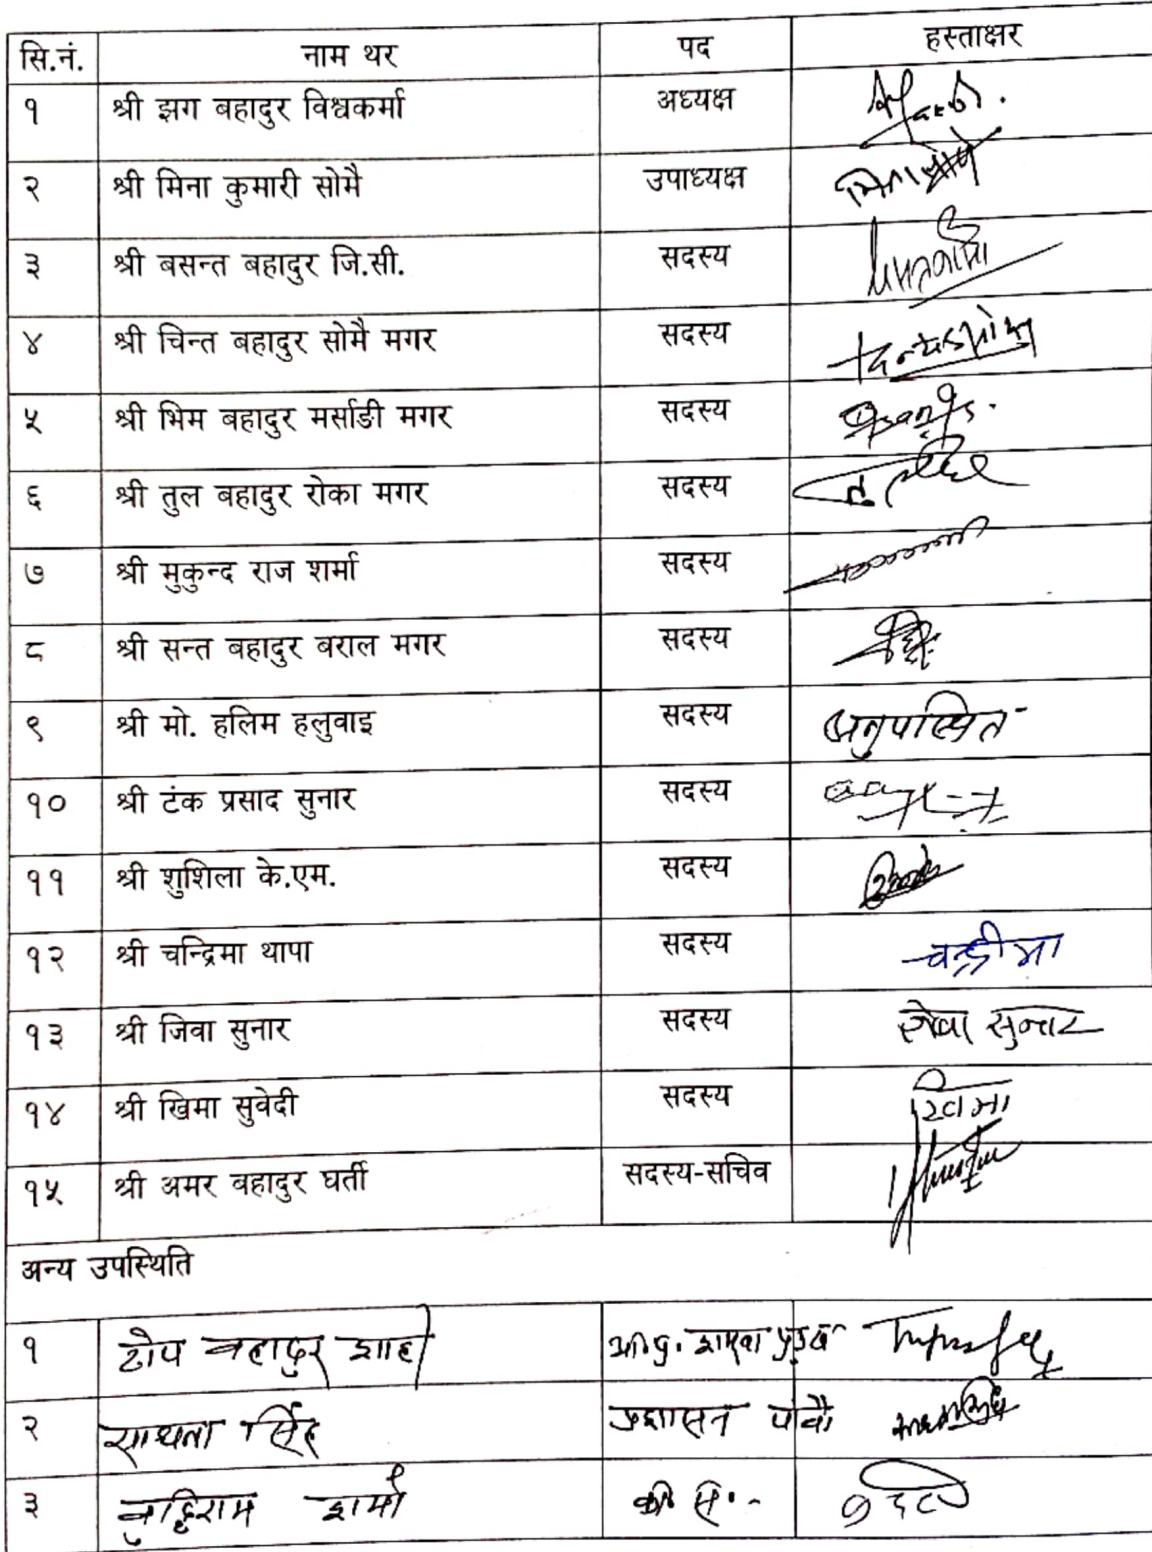 सि.नं. नाम थर पद हस्ताक्षर
१ श्री झग बहादुर विश्वकर्मा अध्यक्ष
२ श्री मिना कुमारी सोमै उपाध्यक्ष
३ श्री बसन्त बहादुर जि.सी. सदस्य
४ श्री चिन्त बहादुर सोमै मगर सदस्य
५ श्री भिम बहादुर मर्साङी मगर सदस्य
६ श्री तुल बहादुर रोका मगर सदस्य
७ श्री मुकुन्द राज शर्मा सदस्य
८ श्री सन्त बहादुर बराल मगर सदस्य
९ श्री मो. हलिम हलुवाइ सदस्य अनुपस्थित
१० श्री टंक प्रसाद सुनार सदस्य
११ श्री शुशिला के.एम. सदस्य
१२ श्री चन्द्रिमा थापा सदस्य चन्द्रीमा
१३ श्री जिवा सुनार सदस्य सुनार
१४ श्री खिमा सुवेदी सदस्य खिमा
१५ श्री अमर बहादुर घर्ती सदस्य-सचिव
अन्य उपस्थिति
१ टोप बहादुर शाही
२ साधना सिंह प्रशासन
३ बुद्दिराम शर्मा